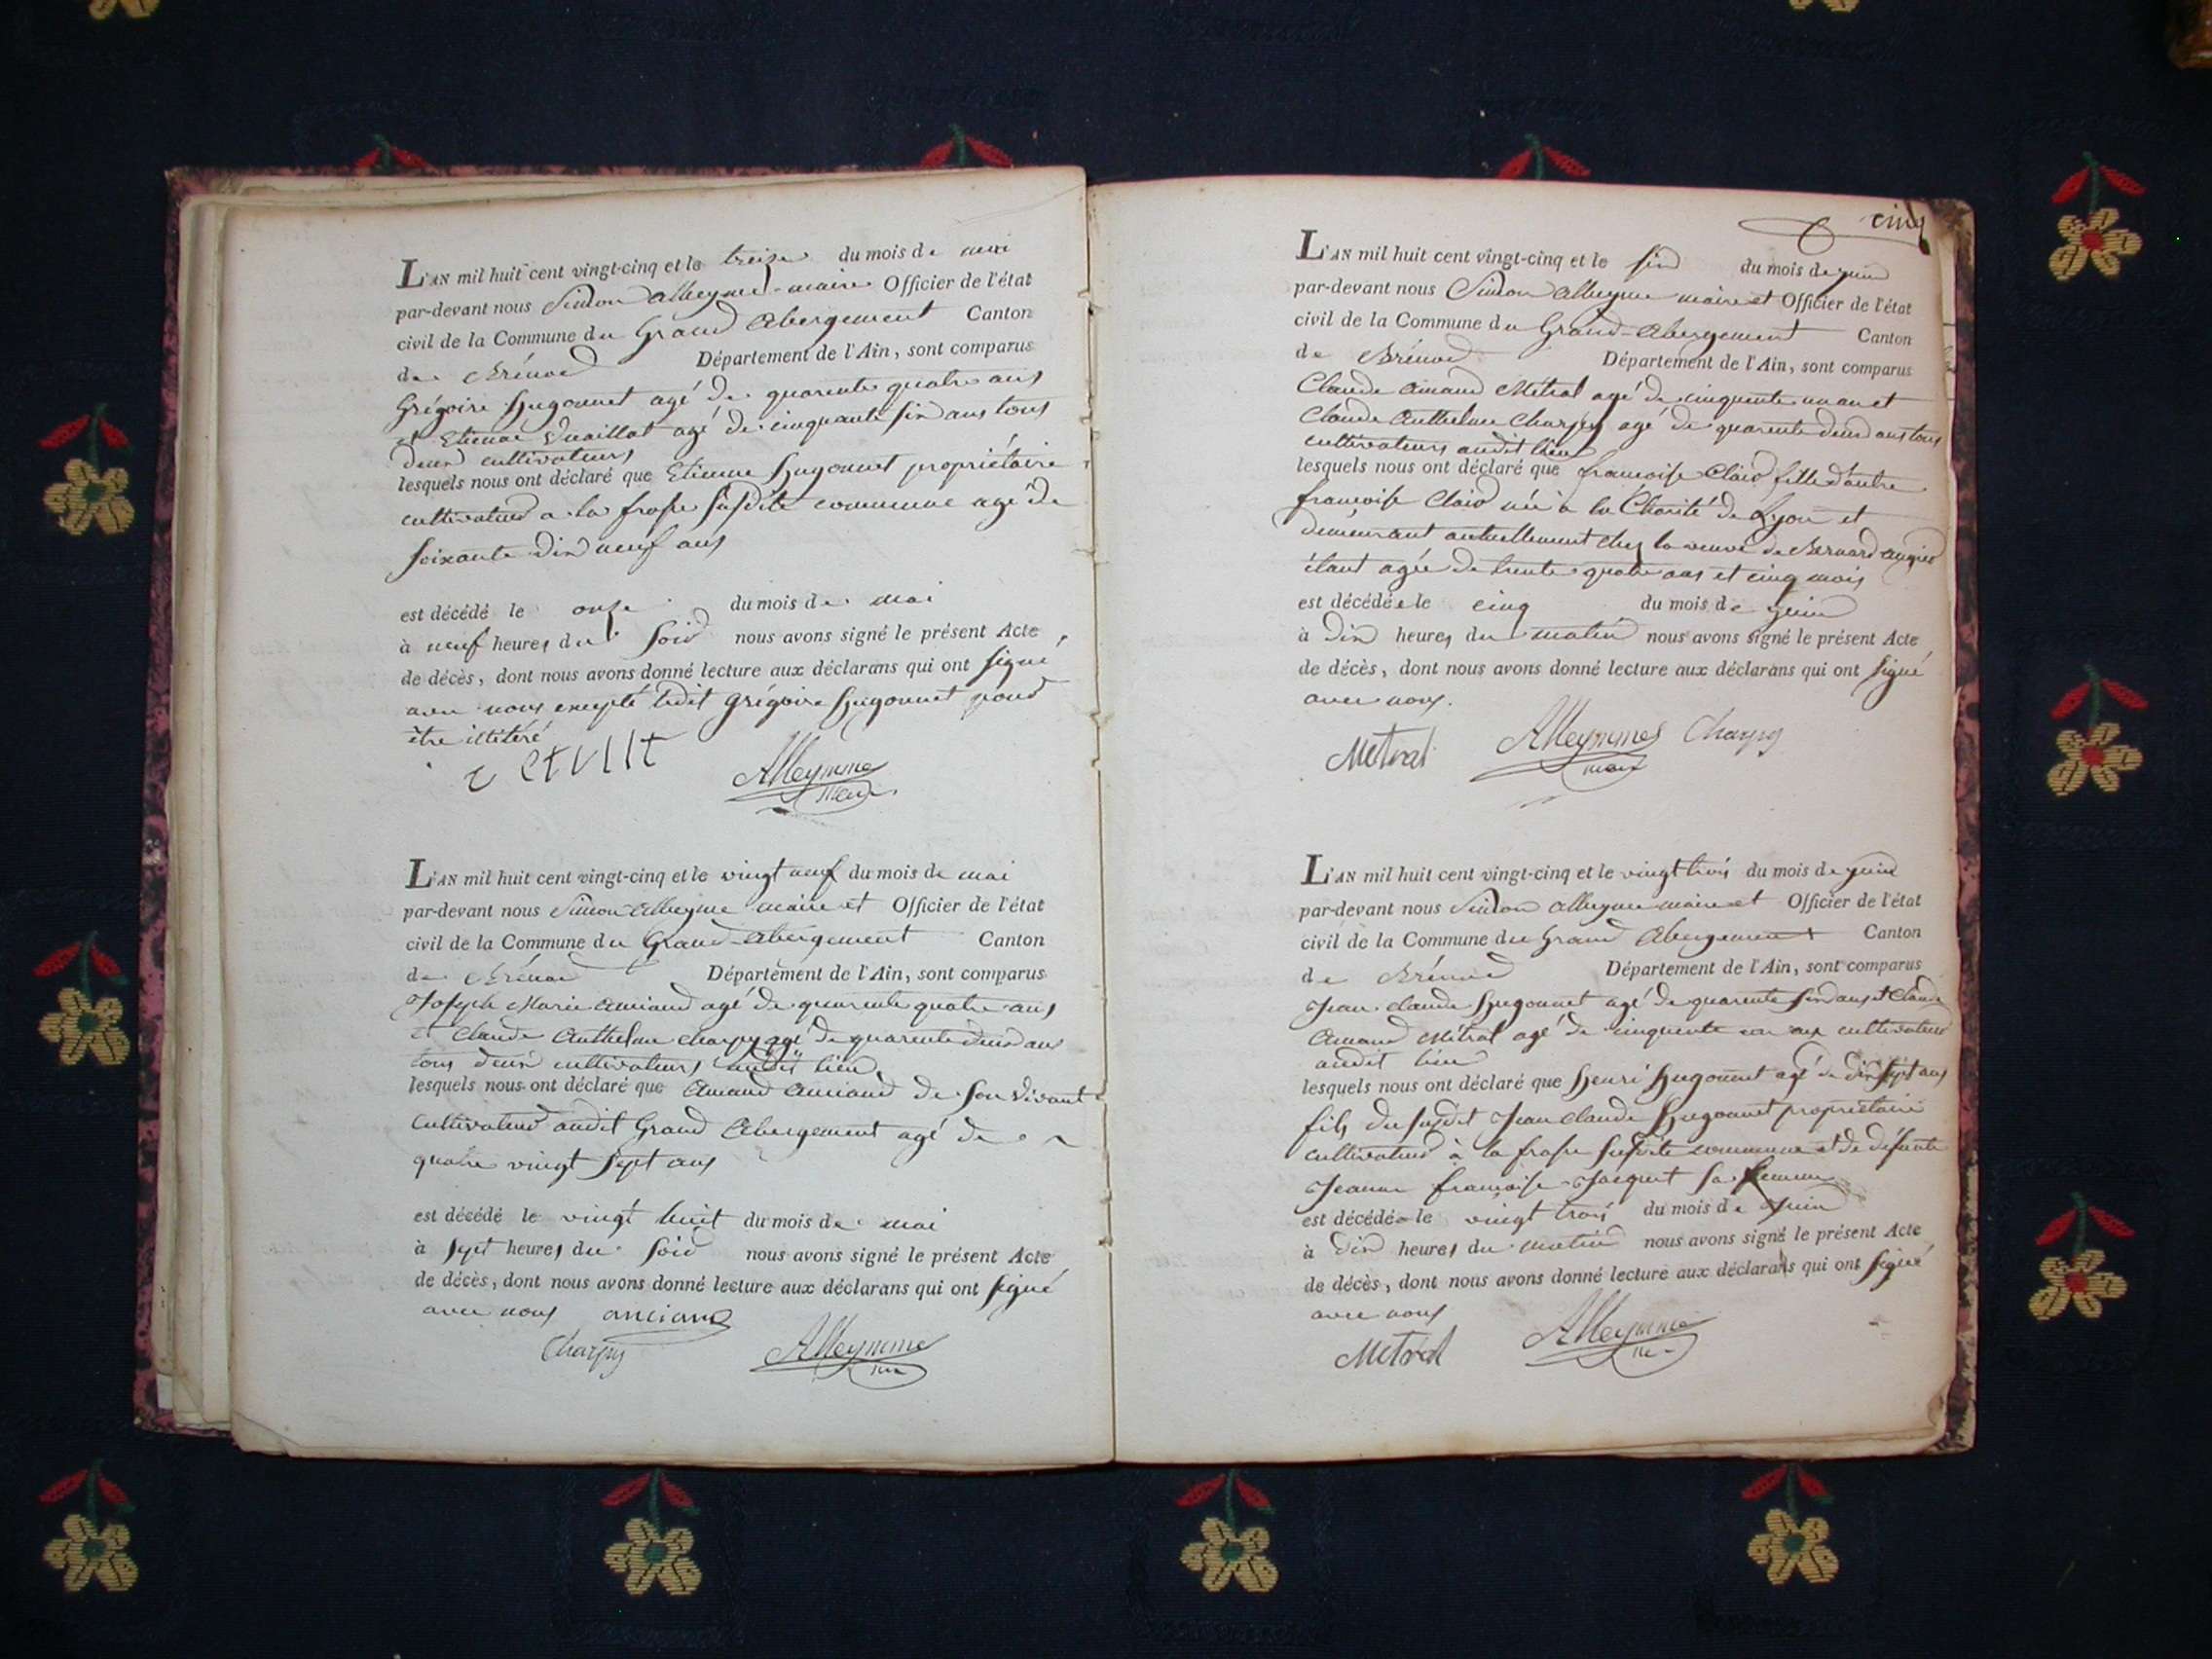 L'AN mil huit cent vingt-cinq et le treize du mois de mai
par-devant nous Simon Alleyme maire Officier de l'état
civil de la Commune du Grand Abergement Canton
de Brénod Département de l'Ain, sont comparus
Grégoire Hugonnet agé de quarente quatre ans
et Etienne agé de cinquante six ans tous
deux cultivateurs
lesquels nous ont déclaré que Etienne Hugonnet propriétaire
cultivateur a la frasse susdite commune agé de
soixante dix neuf ans
est décédé le onze du mois de mai
à neuf heures du soir nous avons signé le présent Acte
de décès, dont nous avons donné lecture aux déclarans qui ont signé
avec nous excepté ledit Grégoire Hugonnet pour
être illitéré
Alleymme
maire
L'AN mil huit cent vingt-cinq et le vingt neuf du mois de mai
par-devant nous Simon Alleyme maire et Officier de l'état
civil de la Commune du Grand-Abergement Canton
de Brénod Département de l'Ain, sont comparus
Joseph Marie Anciand agé de quarente quatre ans
et Claude Anthelme Charpy agé de quarente deux ans
tous deux cultivateurs audit lieu
lesquels nous ont déclaré que Amand Anciand de son vivant
cultivateur audit Grand Abergement agé de
quatre vingt sept ans
est décédé le vingt huit du mois de mai
à sept heures du soir nous avons signé le présent Acte
de décès, dont nous avons donné lecture aux déclarans qui ont signé
avec nous anciand
Charpy Alleymme
cinq
L'AN mil huit cent vingt-cinq et le six du mois de juin
par-devant nous Simon Alleyme maire et Officier de l'état
civil de la Commune du Grand-Abergement Canton
de Brénod Département de l'Ain, sont comparus
Claude Amand Métral agé de cinquente un an et
Claude Anthelme Charpy agé de quarente deux ans tous
cultivateurs audit lieu
lesquels nous ont déclaré que francoise Clair fille d'autre
francoise Clair née à la Charité de Lyon et
demeurant actuellement chez la veuve de Bernard
étant agée de trente quatre ans et cinq mois
est décédée le cinq du mois de juin
à dix heures du matin nous avons signé le présent Acte
de décès, dont nous avons donné lecture aux déclarans qui ont signé
avec nous.
Metral Alleymme Charpy
maire
L'AN mil huit cent vingt-cinq et le vingt trois du mois de juin
par-devant nous Simon Alleyme maire et Officier de l'état
civil de la Commune du Grand Abergement Canton
de Brénod Département de l'Ain, sont comparus
Jean Claude Hugonnet agé de quarente six ans et Claude
Amand Métral agé de cinquente un ans cultivateurs
audit lieu
lesquels nous ont déclaré que Henri Hugonnet agé de dix sept ans
fils du susdit Jean Claude Hugonnet propriétaire
cultivateur à la frasse susdite commune et de défunte
Jeanne francoise Jacquet sa femme
est décédé le vingt trois du mois de juin
à dix heures du matin nous avons signé le présent Acte
de décès, dont nous avons donné lecture aux déclarans qui ont signé
avec nous
Metral Alleymme